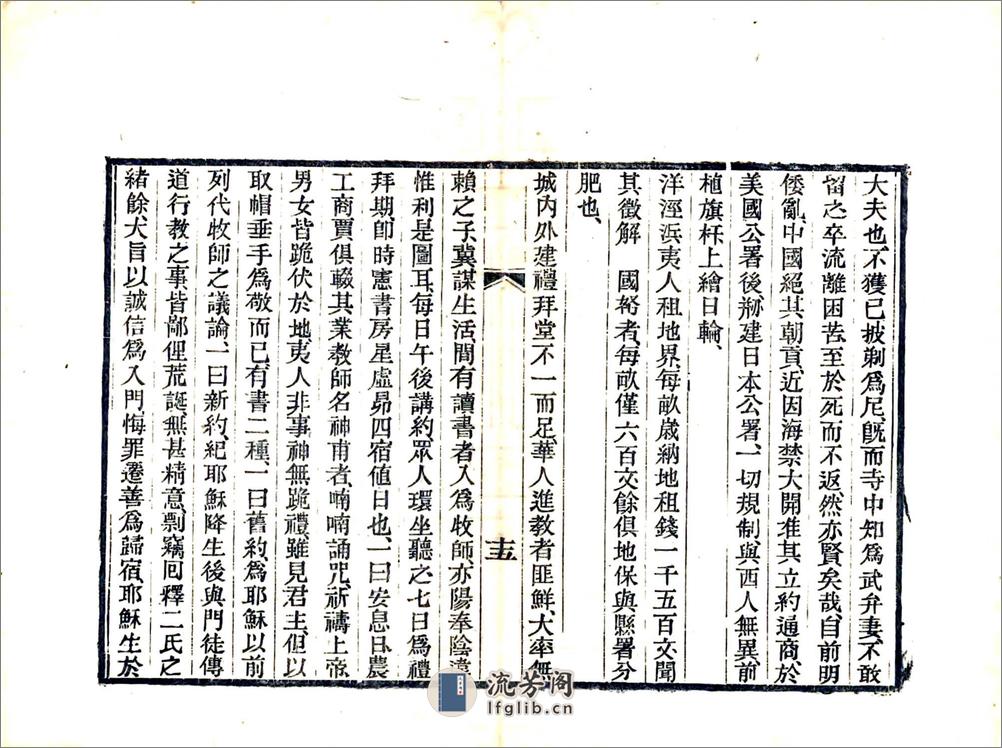 大夫也、不獲已披剃爲尼、旣而寺中知爲武弁妻、不敢
留之、卒流離困苦、至於死而不返、然亦賢矣哉、自前明
倭亂、中國絕其朝貢、近因海禁大開、准其立約通商、於
美國公署後、剙建日本公署、一切規制、與西人無異、前
植旗杆、上繪日輪、
洋涇浜夷人租地界、每畝歲納地租錢一千五百文、聞
其徵解　國帑者、每畝僅六百文、餘俱地保與縣署分
肥也、
城內外建禮拜堂不一而足、華人進教者匪鮮、大率無
十五
賴之子、冀謀生活、間有讀書者入爲牧師、亦陽奉陰違、
惟利是圖耳、每日午後講約、眾人環坐聽之、七日爲禮
拜期、卽時憲書房星虛昴四宿値日也、一曰安息日、農
工商賈俱輟其業、教師名神甫者、喃喃誦咒、祈禱上帝、
男女皆跪伏於地、夷人非事神無跪禮、雖見君主、但以
取帽垂手爲敬而已、有書二種、一曰舊約、爲耶穌以前
列代牧師之議論、一曰新約、紀耶穌降生後與門徒傳
道行教之事、皆鄙俚荒誕、無甚精意、剽竊回釋二氏之
緒餘、大旨以誠信爲入門、悔罪遷善爲歸宿、耶穌生於
流芳阁
lfglib.cn